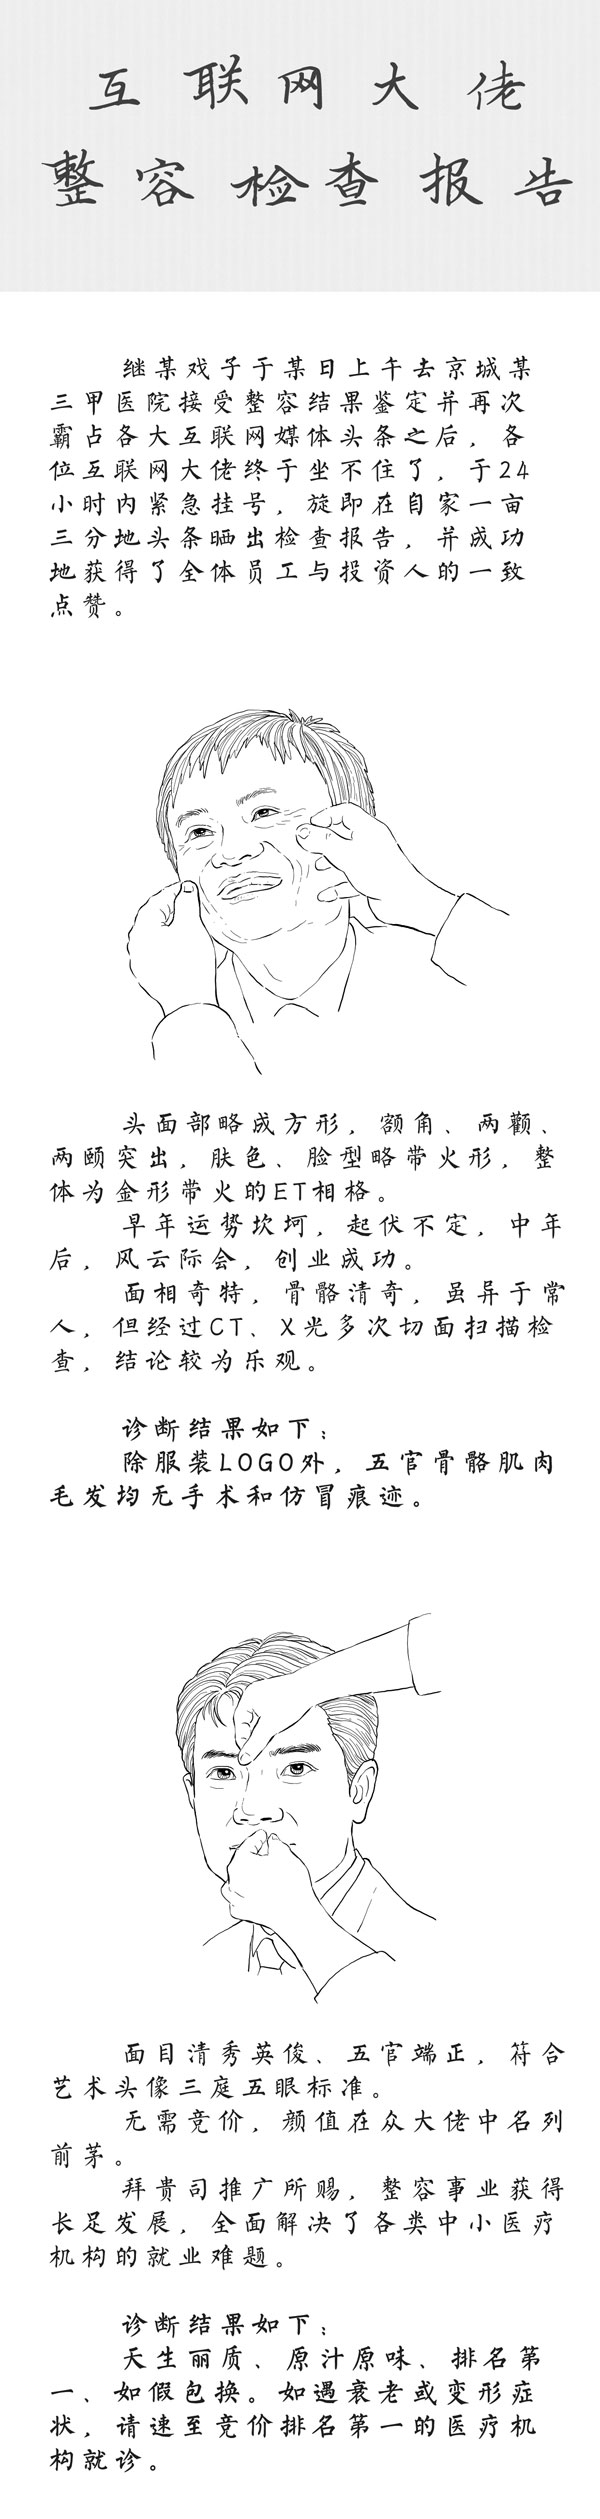 互联网大佬
整容检查报告
继某戏子于某日上午去京城某
三甲医院接受整容结果鉴定并再次
霸占各大互联网媒体头条之后，各
位互联网大佬终于坐不住了，于24
小时内紧急挂号，旋即在自家一亩
三分地头条晒出检查报告，并成功
地获得了全体员工与投资人的一致
点赞。
头面部略成方形，额角、两颧、
两颐突出，肤色、脸型略带火形，整
体为金形带火的ET相格。
早年运势坎坷，起伏不定，中年
后，风云际会，创业成功。
面相奇特，骨骼清奇，虽异于常
人，但经过CT、X光多次切面扫描检
查，结论较为乐观。
诊断结果如下：
除服装LOGO外，五官骨骼肌肉
毛发均无手术和仿冒痕迹。
面目清秀英俊、五官端正，符合
艺术头像三庭五眼标准。
无需竞价，颜值在众大佬中名列
前茅。
拜贵司推广所赐，整容事业获得
长足发展，全面解决了各类中小医疗
机构的就业难题。
诊断结果如下：
天生丽质、原汁原味、排名第
一、如假包换。如遇衰老或变形症
状，请速至竞价排名第一的医疗机
构就诊。